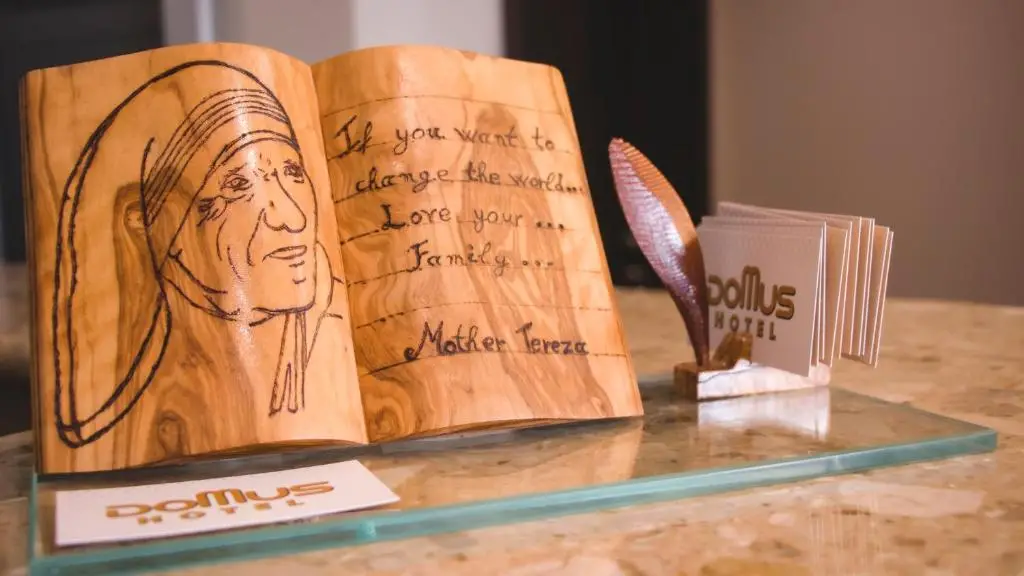 If you want to
change the world...
Love your ...
Family ...
Mother Tereza
DOMUS
HOTEL
DOMUS
HOTEL